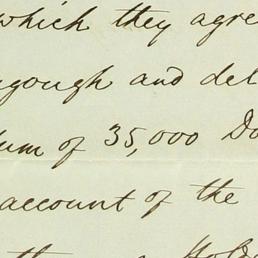 which they agre
gough and del
sum of 35,000 Do
account of the